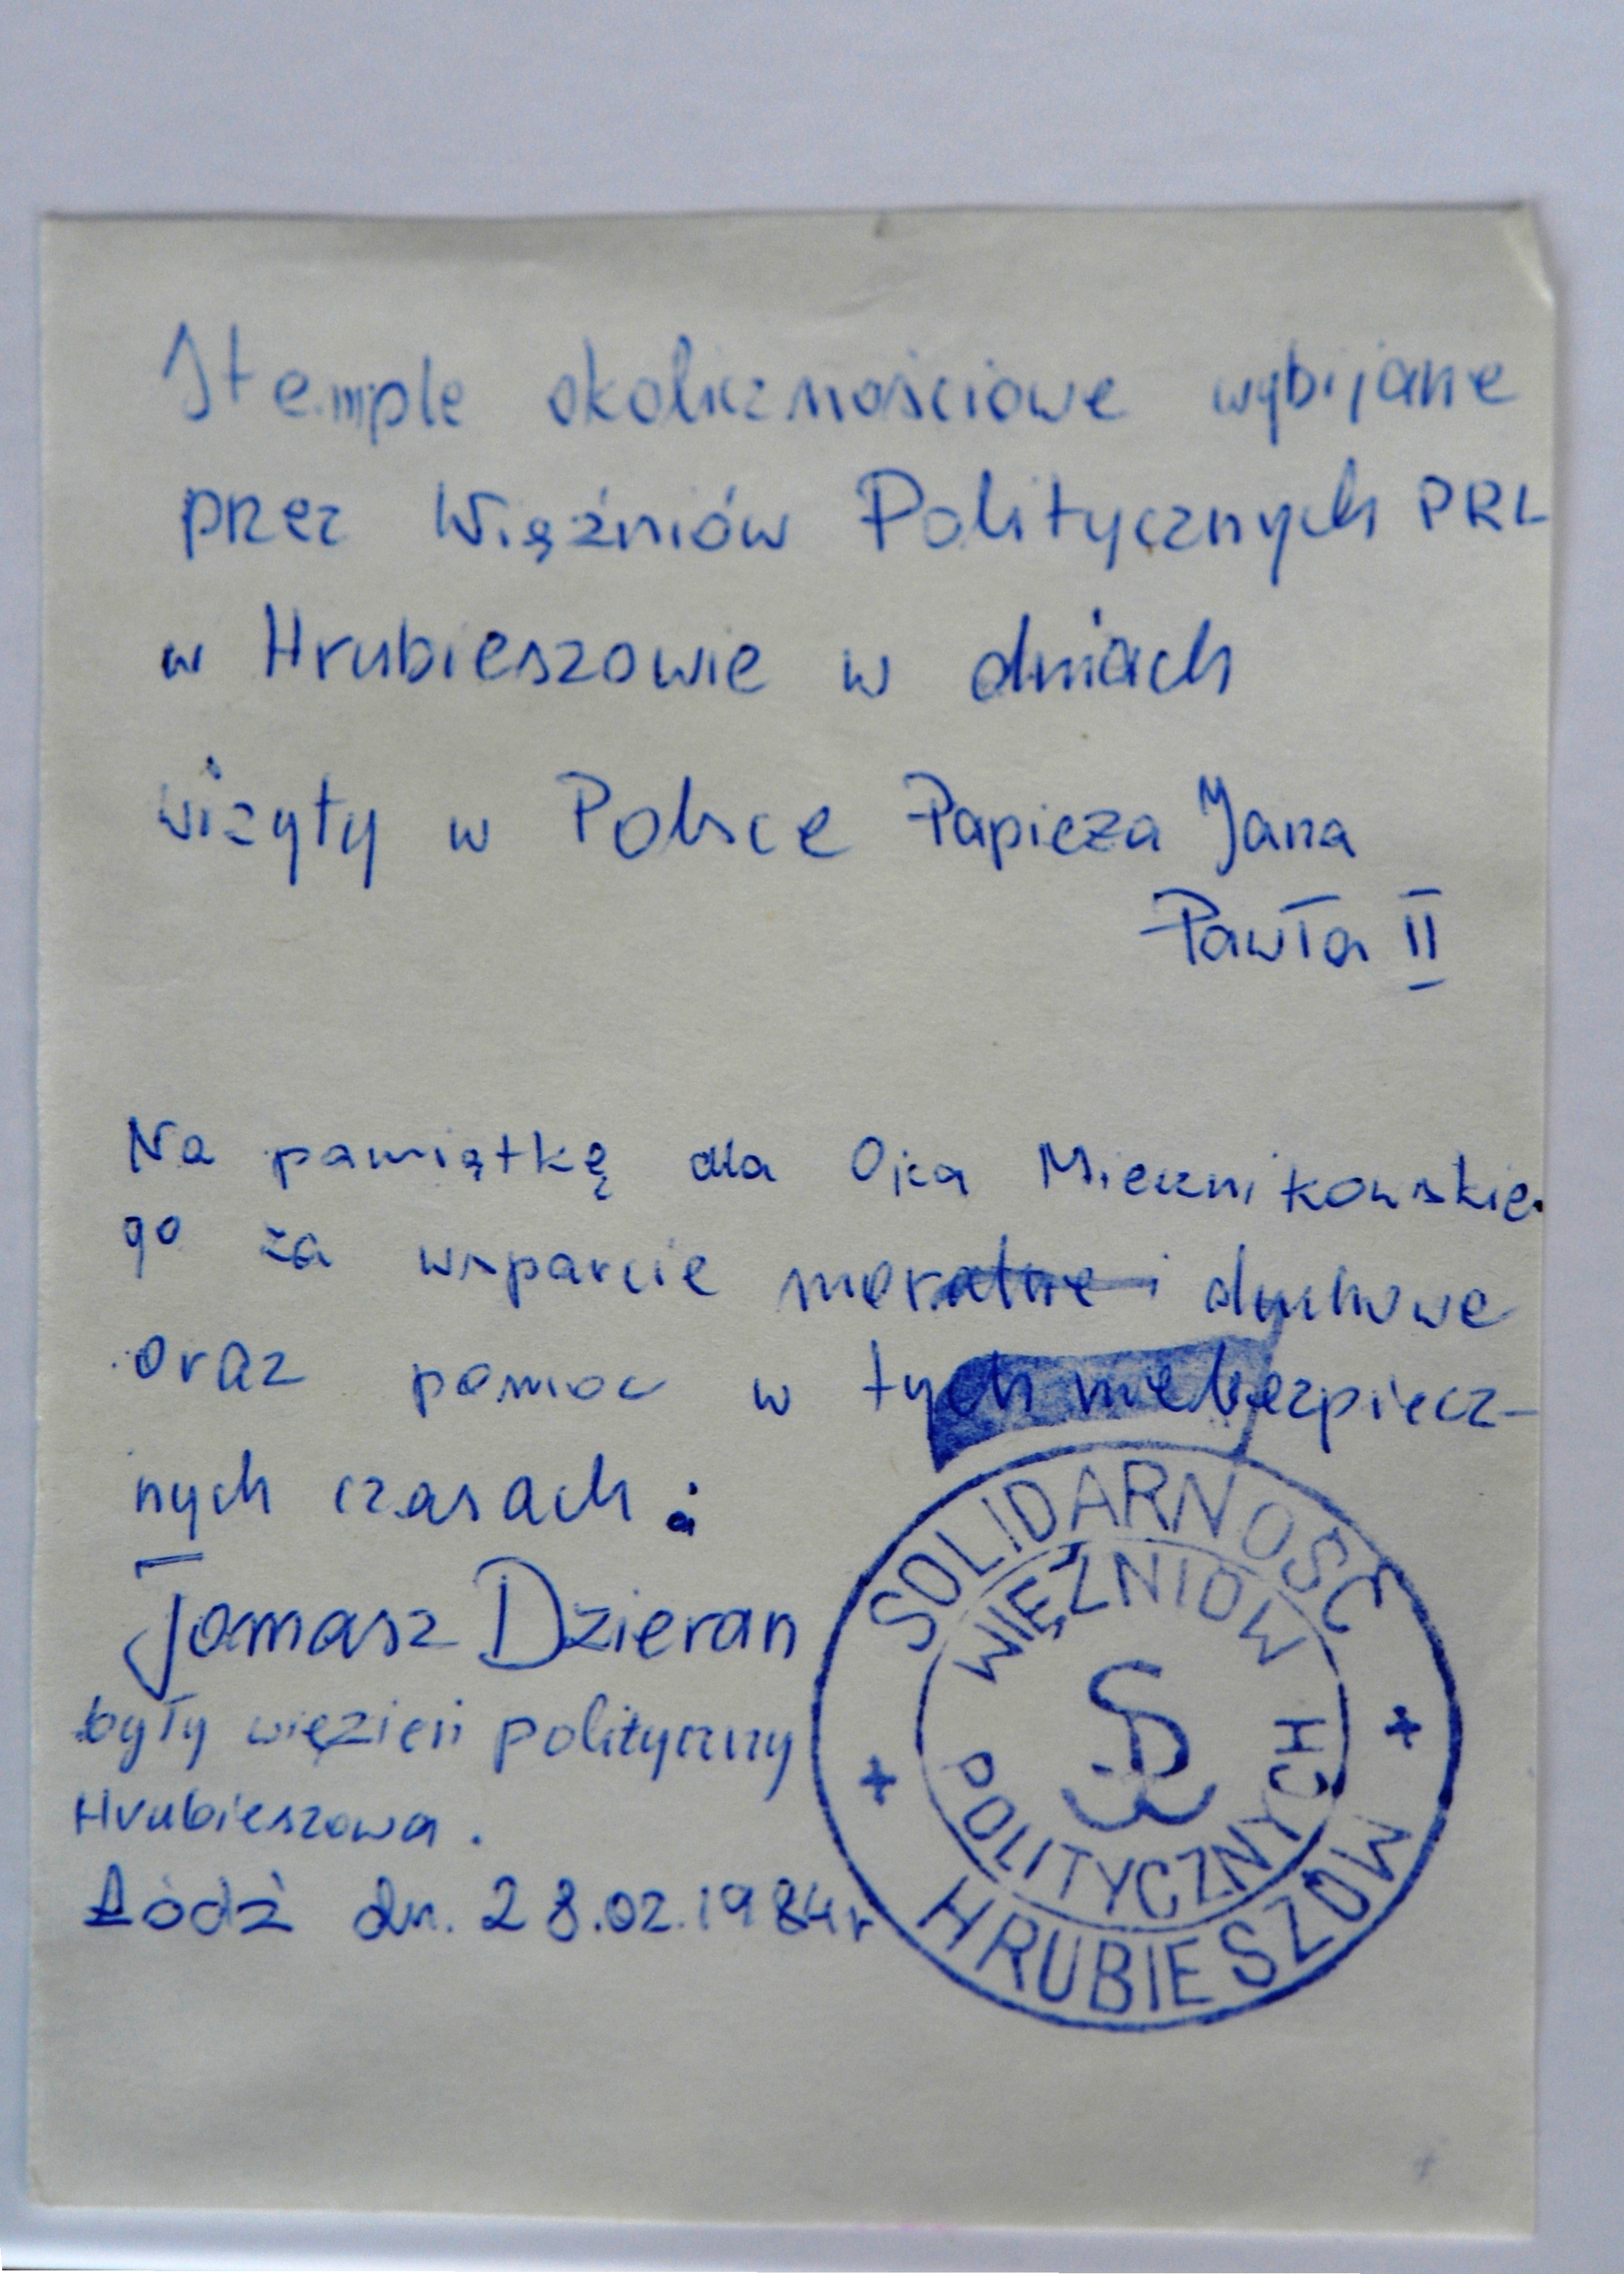 Stemple okolicznościowe wybijane
przez Więźniów Politycznych PRL
w Hrubieszowie w dniach
wizyty w Polsce Papieża Jana
Pawła II
Na pamiątkę dla Ojca Miecznikowskie-
go za wsparcie moralne i duchowe
oraz pomoc w tych niebezpiecz-
nych czasach.
Tomasz Dzieran
były więzień polityczny
Hrubieszowa.
Łódź dn. 28.02.1984r
SOLIDARNOŚĆ
WIĘŹNIÓW
POLITYCZNYCH
HRUBIESZÓW